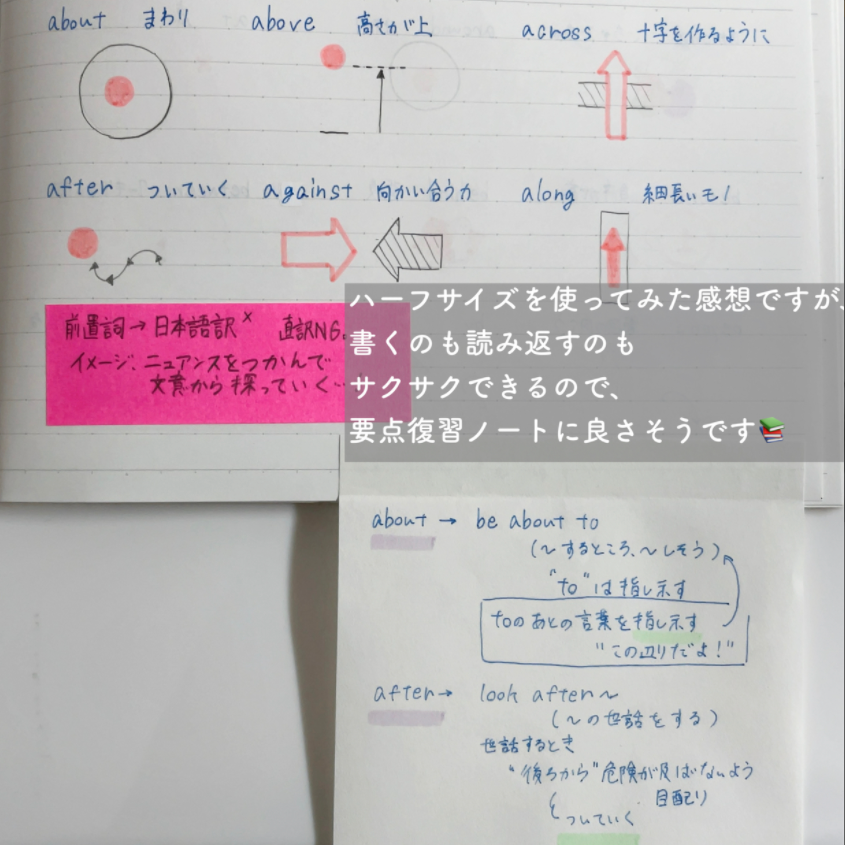 about まわり above 高さが上 across 十字を作るように
after ついていく against 向かい合う力 along 細長いモノ
前置詞→日本語訳× 直訳NG.
イメージ、ニュアンスをつかんで
文意から探っていく…
ハーフサイズを使ってみた感想ですが、
書くのも読み返すのも
サクサクできるので、
要点復習ノートに良さそうです📚
about → be about to
(〜するところ、〜しそう)
"to"は指し示す
toのあとの言葉を指し示す
"この辺りだよ!"
after→ look after〜
(〜の世話をする)
世話するとき
"後ろから"危険が及ばないよう
目配り
ついていく